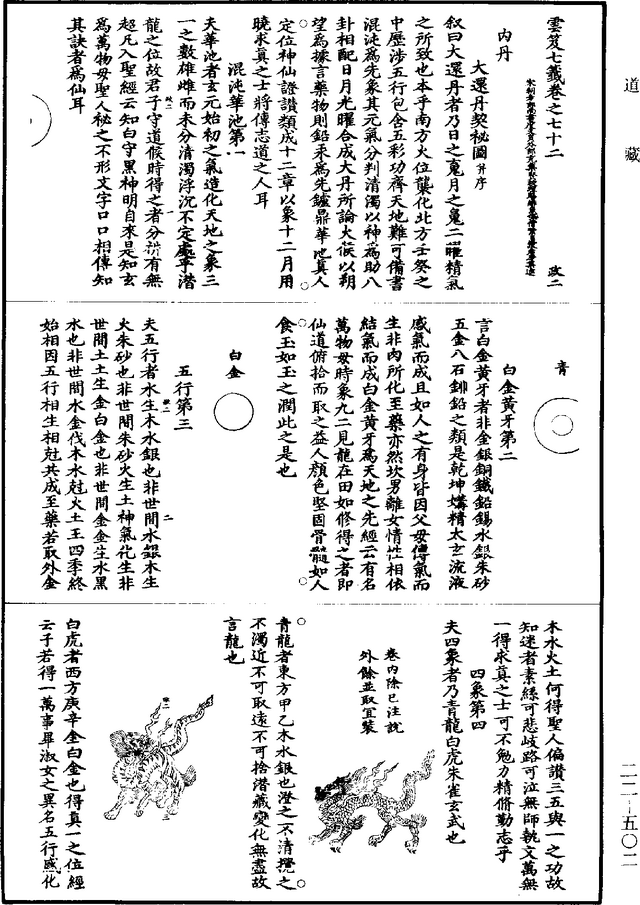 道藏
雲笈七籤卷之七十二
政二
內丹
大還丹契秘圖并序
叙曰大還丹者乃日之䰟月之魄二曜精氣
之所致也本乎南方火位龔化北方壬癸之
中歷涉五行包含五彩功齊天地難可備書
混沌為先象其元氣分判清濁以神為助八
卦相配日月光曜合成大丹所論火候以朔
望為據言藥物則鉛汞為先鑪鼎華池真人
定位神仙證讚類成十二章以象十二月用
曉求真之士將傳志道之人耳
混沌華池第一
夫華池者玄元始初之氣造化天地之象三
一之數雄雌而未分清濁浮沉不定處乎潛
龍之位故君子守道候時得之者分辨有無
超凡入聖經云知白守黑神明自來是知玄
為萬物母聖人秘之不形文字口口相傳知
其訣者為仙耳
青
白金黃牙第二
言白金黃牙者非金銀銅鐵鉛錫水銀朱砂
五金八石鉚鉛之類是乾坤媾精太玄流液
感氣而成且如人之有身皆因父母傳氣而
生非肉所化至藥亦然坎男離女情性相依
結氣而成白金黃牙為天地之先經云有名
萬物母時象九二見龍在田如修得之者即
仙道俯拾而取之益人顏色堅固骨髓如人
食玉如玉之潤此之是也
白金
五行第三
夫五行者水生木水銀也非世間水銀木生
火朱砂也非世間朱砂火生土神氣化生非
世間土土生金白金也非世間金金生水黑
水也非世間水金伐木水尅火土王四季終
始相因五行相生相尅共成至藥若取外金
木水火土何得聖人偏讚三五與一之功故
知迷者素絲可悲岐路可泣無師執文萬無
一得求真之士可不勉力精脩勤志乎
四象第四
夫四象者乃青龍白虎朱雀玄武也
卷內除已注說
外餘並取宜裝
青龍者東方甲乙木水銀也澄之不清攪之
不濁近不可取遠不可捨潛藏變化無盡故
言龍也
白虎者西方庚辛金白金也得真一之位經
云子若得一萬事畢淑女之異名五行感化
二二-五〇二